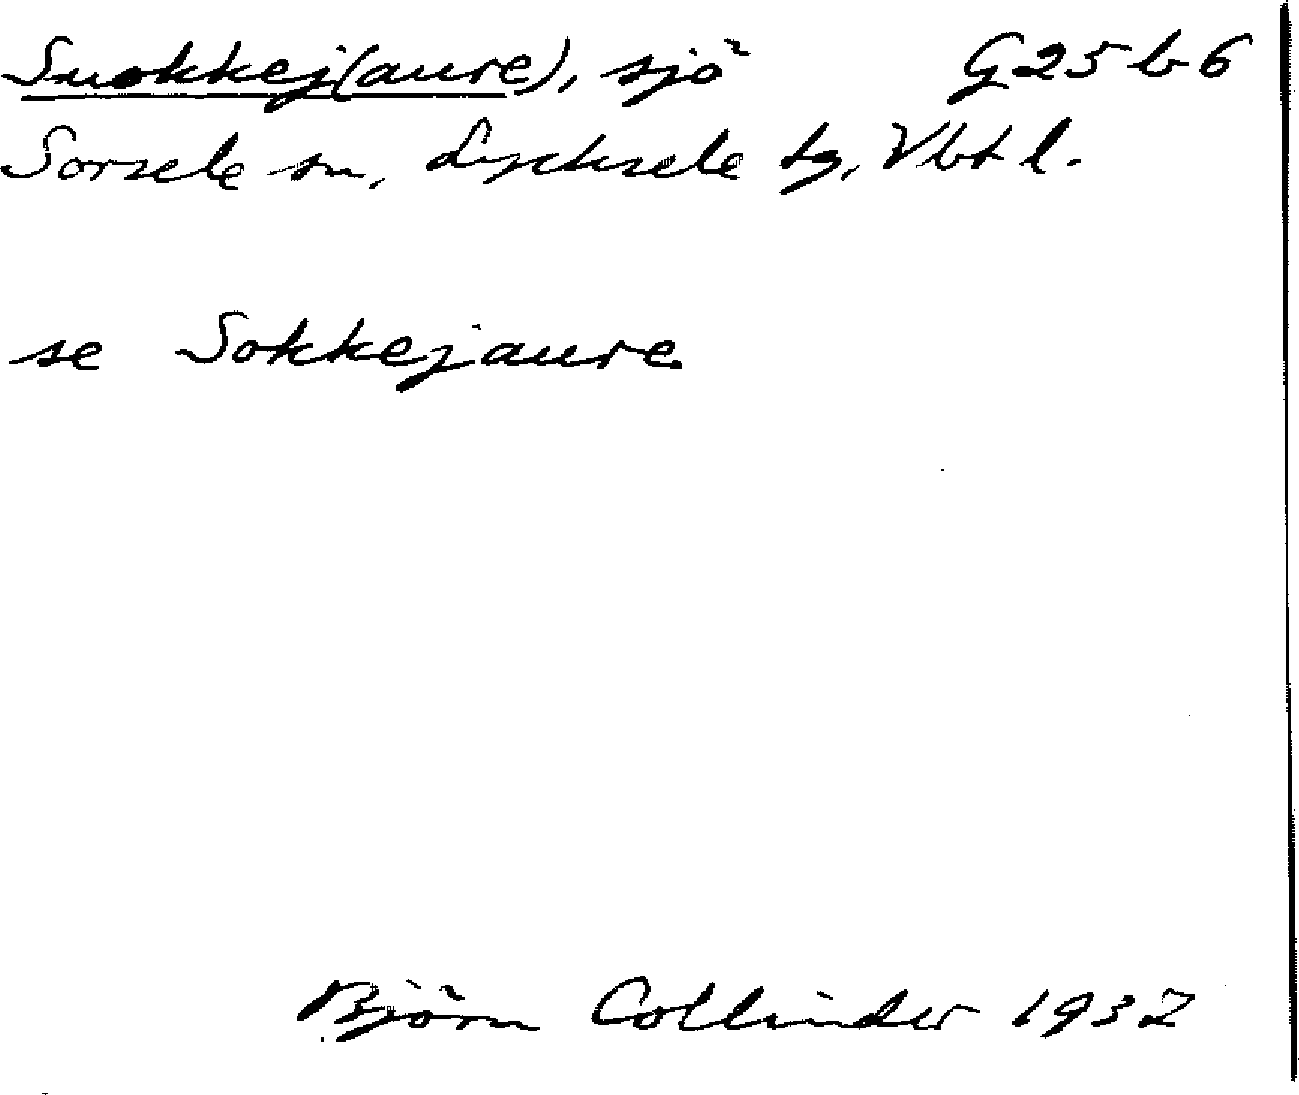 Suokkej(aure), sjö G25b6
Sorsele sn, Lycksele tg, Vbtl.
se Sokkejaure
Björn Collinder 1932